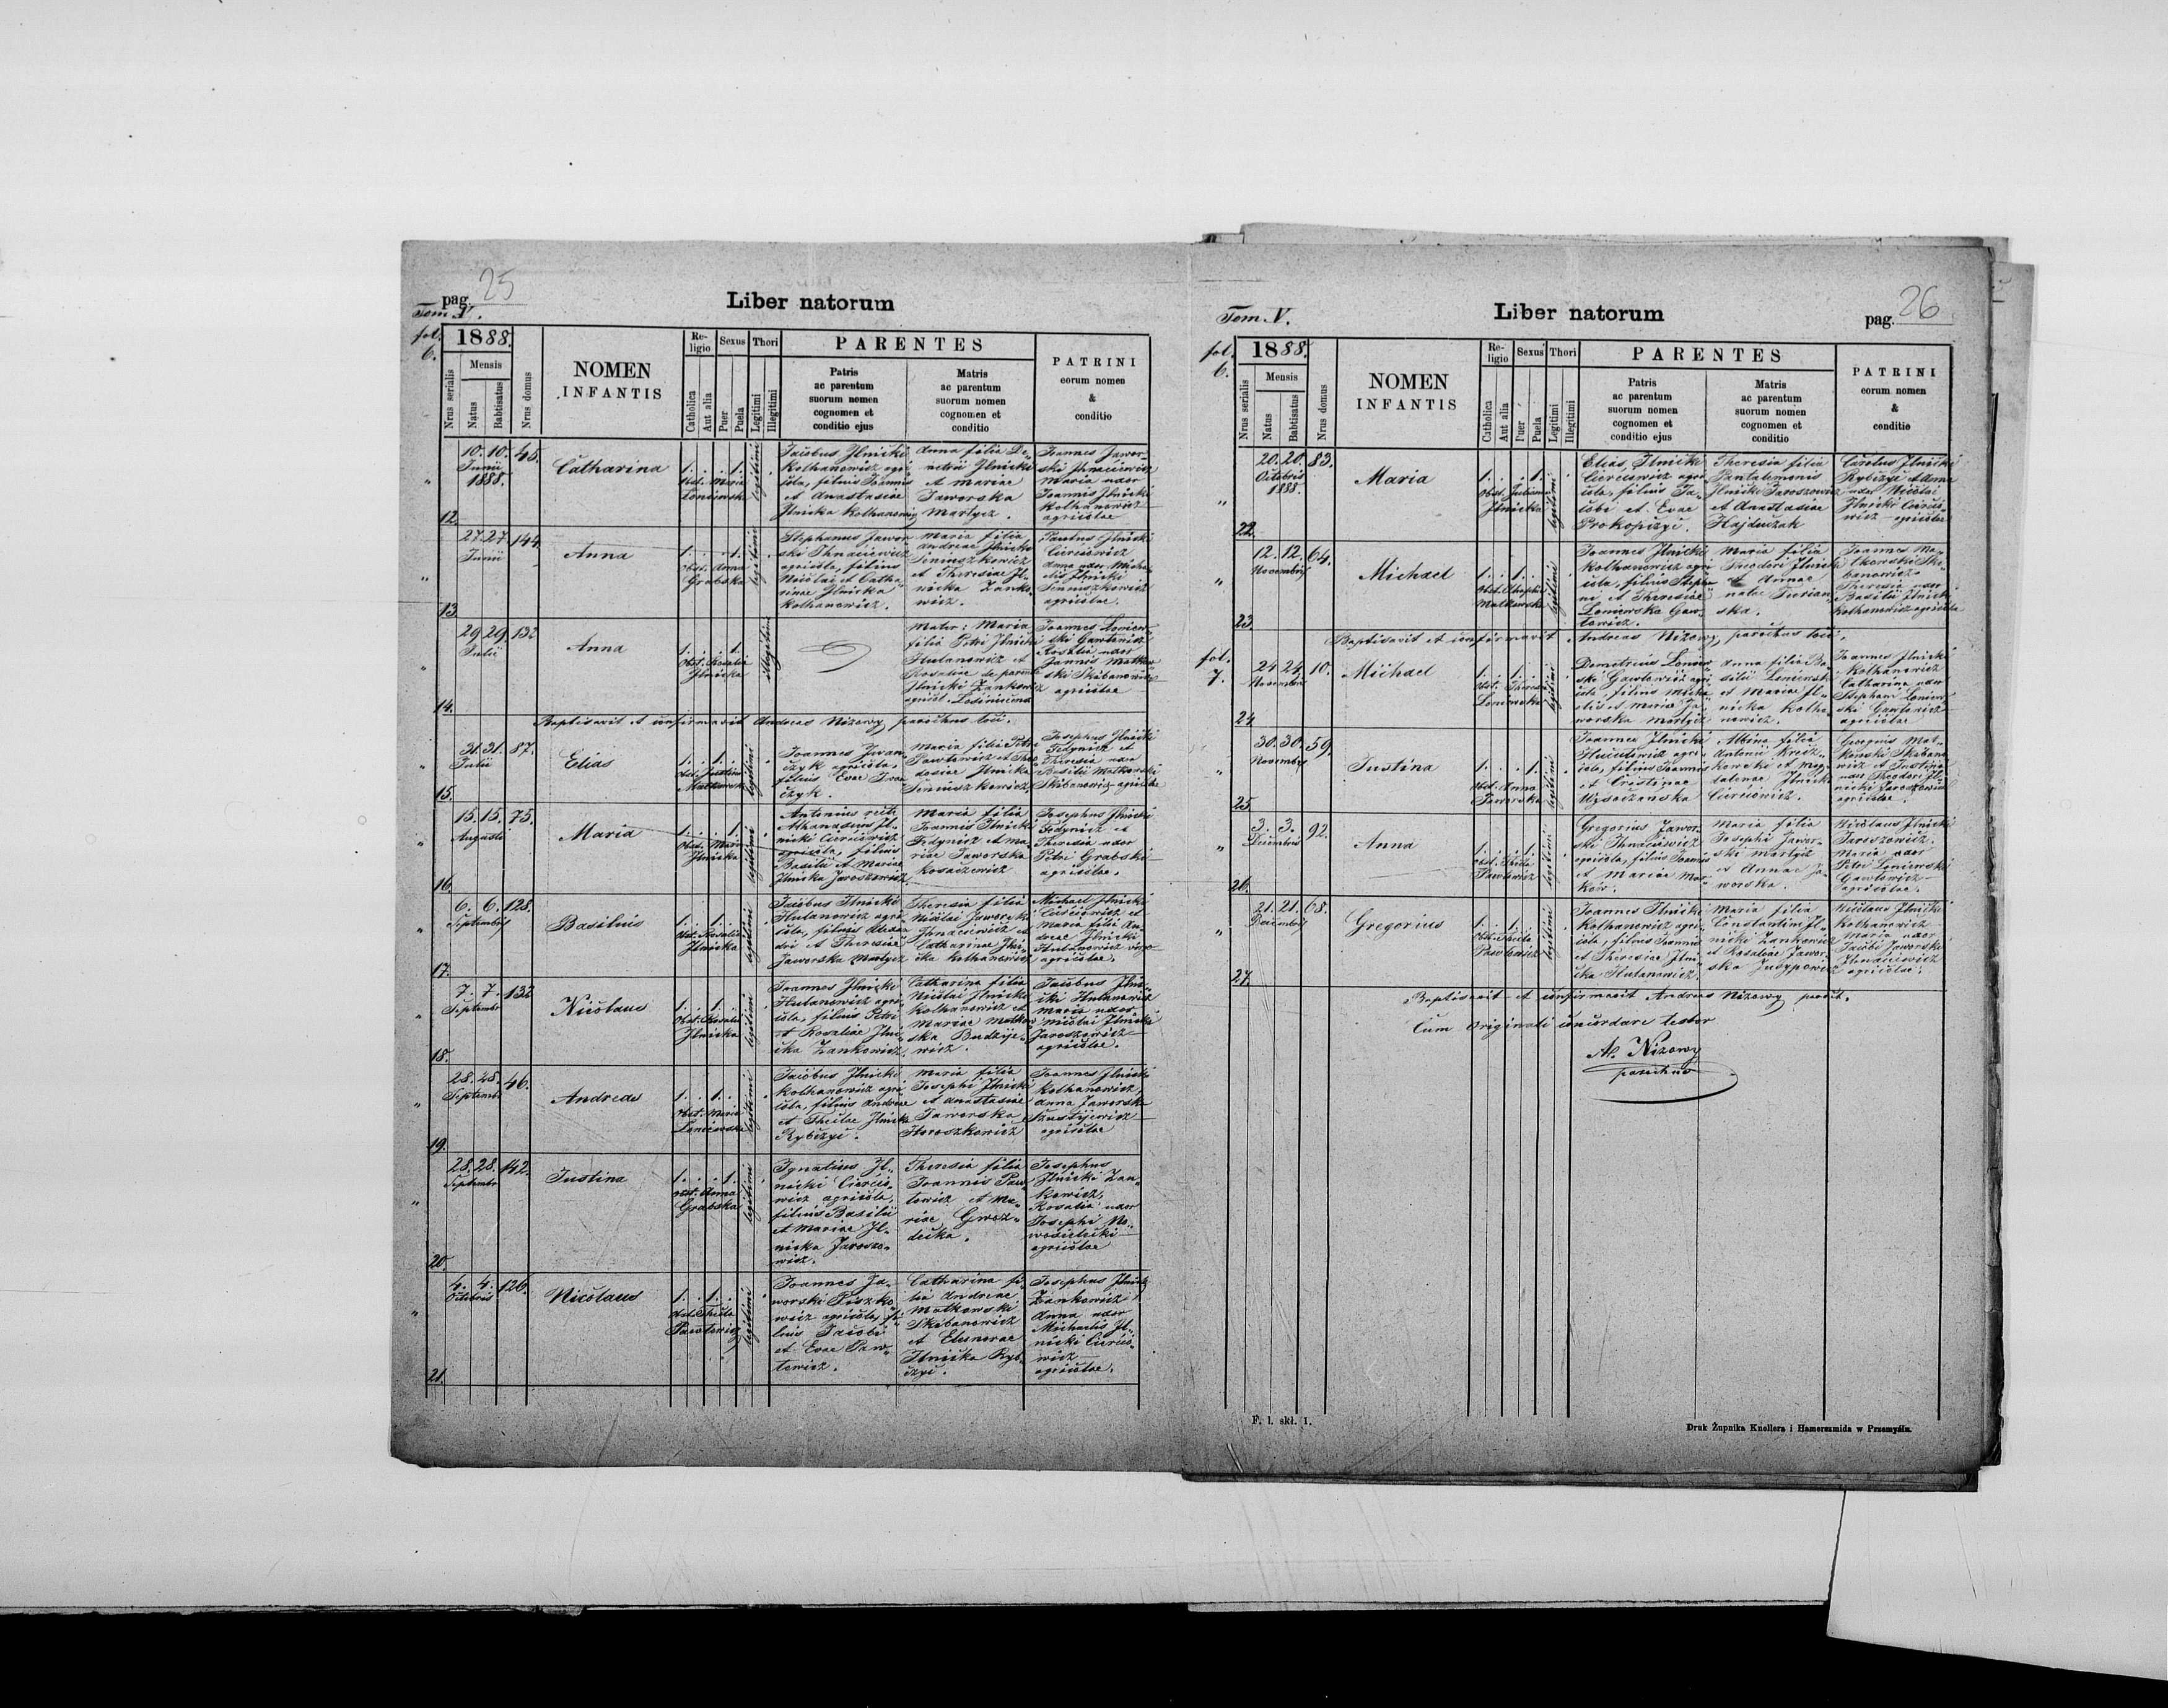 pag. 25
Liber natorum
Tom. V.
fol. 6.
1888.
Mensis
Nrus serialis
Natus
Babtisatus
Nrus domus
NOMEN
INFANTIS
Religio
Catholica
Aut alia
Sexus
Puer
Puela
Thori
Legitimi
Illegitimi
PARENTES
Patris
ac parentum
suorum nomen
cognomen et
conditio ejus
Matris
ac parentum
suorum nomen
cognomen et
conditio
PATRINI
eorum nomen
&
conditio
12.
10. 10. 45.
Junii
1888.
Catharina
1. . . 1.
Obst. Maria
legitimi
Jacobus Ilnicki
Kolhanowicz agri„
cola, filius Joannis
et Anastasiae
Ilnicka Kolhanowicz
Anna filia De„
metrii Ilnicki
et Mariae
Jaworska
Martycz.
Joannes Jawor„
ski Ihnaciewicz
Maria uxor
Joannis Ilnicki
Kolhanowicz
agricolae
13.
27. 27. 144.
Junii
Anna
1. . . 1.
Obst. Anna
Grabska
legitimi
Stephanus Jawor„
ski Ihnaciewicz
agricola, filius
Nicolai et Catha„
rinae Ilnicka
Kolhanowicz.
Maria filia
Andreae Ilnicki
Seniuszkowicz
et Theresiae Il„
nicka Zanko„
wicz.
Paulus Ilnicki
Circiowicz
Anna uxor Micha„
elis Ilnicki
Seniuszkowicz
agricolae.
14.
29. 29. 132
Julii
Anna
1. . . 1.
Obst. Rosalia
Ilnicka
illegitimi
Mater: Maria
filia Petri Ilnicki
Hutanowicz et
Rosaliae de parent.
Ilnicki Zankowicz
Joannes Loniew„
ski Gawlowicz
Rosalia uxor
Joannis Matkow„
ski Skibanowicz
agricolae
Baptisavit et confirmavit Andreas Nizowy, parochus loci.
15.
31. 31. 87.
Julii
Elias
1. . 1. .
Obst. Justina
Matkowska
legitimi
Joannes Iwan„
czyk agricola,
filius Evae Iwa„
czyk.
Maria filia Petri
Pawlowicz et Theo„
dosiae Ilnicka
Seniuszkowicz.
Josephus Ilnicki
Fedynicz et
Theresia uxor
Basilii Matkowski
Skibanowicz agricolae
16.
15. 15. 75.
Augusti
Maria
1. . . 1.
Obst. Maria
Ilnicka
legitimi
Antonius recte
Athanasius Il„
nicki Circiowicz
agricola, filius
Basilii et Mariae
Ilnicka Jaroszowicz.
Maria filia
Joannis Ilnicki
Fedynicz et Ma„
riae Jaworska
Kosaczewicz
Josephus Ilnicki
Fedynicz et
Theresia uxor
Petri Grabski
agricolae.
17.
6. 6. 128.
Septembris
Basilius
1. . 1. .
Obst. Rosalia
Ilnicka
legitimi
Jacobus Ilnicki
Hutanowicz agri„
cola, filius
et Theresiae
Jaworska Martycz
Theresia filia
Nicolai Jaworski
Ihnaciewicz et
Catharinae Ilni„
cka Kolhanowicz
Michael Ilnicki
Circiowicz et
Maria filia An„
dreae Ilnicki
Hutanowicz virgo
agricolae.
18.
7. 7. 132
Septembr
Nicolaus
1. . 1. .
Obst. Rosalia
Ilnicka
legitimi
Joannes Ilnicki
Hutanowicz agri„
cola, filius Petri
et Rosaliae Ilni„
cka Zankowicz.
Catharina filia
Nicolai Ilnicki
Kolhanowicz et
Mariae Matkow„
ska Budzije„
wicz.
Jacobus Ilni„
cki Hutanowicz
Maria uxor
Nicolai Ilnicki
Jaroszowicz
agricolae.
19.
28. 28. 46.
Septembr
Andreas
1. . 1. .
Obst. Maria
legitimi
Jacobus Ilnicki
Kolhanowicz agri„
cola, filius Andreae
et Theclae Ilnicka
Rybczyc.
Maria filia
Josephi Ilnicki
et Anastasiae
Jaworska
Horoszkowicz
Joannes Ilnicki
Kolhanowicz,
Anna Jaworska
agricolae
20.
28. 28. 142.
Septembr
Justina
1. . . 1.
obst. Anna
Grabska
legitimi
Ignatius Il„
nicki Circio„
wicz agricola,
filius Basilii
et Mariae Il„
nicka Jaroszo„
wicz.
Theresia filia
Joannis Paw„
lowicz et Ma„
riae Gwoz„
decka.
Josephus
Ilnicki Zan„
kowicz,
Rosalia uxor
Josephi No„
wosielecki
agricolae
21.
4. 4. 126.
Octobris
Nicolaus
1. . 1. .
Obst. Thecla
Pawlowicz
legitimi
Joannes Ja„
worski Piszko„
wicz agricola, fi„
lius Jacobi
et Evae Paw„
lowicz.
Catharina fi„
lia Andreae
Matkowski
Skibanowicz
et Eleonorae
Ilnicka Ryb„
czyc.
Josephus Ilnicki
Zankowicz,
Anna uxor
Michaelis Il„
nicki Circio„
wicz
agricolae.
Tom. V.
Liber natorum
pag. 26
fol. 6.
1888.
Mensis
Nrus serialis
Natus
Babtisatus
Nrus domus
NOMEN
INFANTIS
Religio
Catholica
Aut alia
Sexus
Puer
Puela
Thori
Legitimi
Illegitimi
PARENTES
Patris
ac parentum
suorum nomen
cognomen et
conditio ejus
Matris
ac parentum
suorum nomen
cognomen et
conditio
PATRINI
eorum nomen
&
conditio
22.
20. 20. 83.
Octobris
1888.
Maria
1. . . 1.
Obst. Juliana
Ilnicka
legitimi
Elias Ilnicki
Circiowicz agri„
cola, filius Ja„
cobi et Evae
Prokopczyc.
Theresia filia
Pantalemonis
Ilnicki Jaroszowicz
et Anastasiae
Hajduczak
Carolus Ilnicki
Rybczyc et Anna
uxor Nicolai
Ilnicki Circio„
wicz agricolae
23.
12. 12. 64.
Novembris
Michael
1. . 1. .
Matkowska
legitimi
Joannes Ilnicki
Kolhanowicz agri„
cola, filius Stepha„
ni et Theresiae
Loniewska Gaw„
lowicz.
Maria filia
Theodori Ilnicki
et Annae
natae Turian„
ska.
Joannes Ma„
tkowski Ski„
banowicz
Theresia uxor
Basilii Ilnicki
Kolhanowicz agricolae
Baptisavit et confirmavit Andreas Nizowy, parochus loci.
fol. 7.
24.
24 24. 10.
Novembris
Michael
1. . 1. .
legitimi
Demetrius Loniew„
ski Gawlowicz agri„
cola, filius Micha„
elis et Mariae Ja„
worska Martycz
Anna filia Ba„
silii Loniewski
et Mariae Il„
nicka Kolha„
nowicz.
Joannes Ilnicki
Kolhanowicz
Catharina uxor
Stephani Loniew„
ski Gawlowicz
agricolae
25.
30. 30. 59.
Novembris
Justina
1. . . 1.
Obst. Anna
Jaworska
legitimi
Joannes Ilnicki
agri„
cola, filius Joannis
et Cristinae
Wysoczanska
filia
Antonii
et Mag„
dalenae Ilnicka
Circiowicz.
Georgius Mat„
kowski Skibano„
wicz et Justina
uxor Theodori Il„
nicki Jaroszowicz
agricolae.
26.
3. 3. 92.
Decembris
Anna
1. . . 1.
obst. Thecla
Pawlowicz
legitimi
Gregorius Jawor„
ski Ihnaciewicz
agricola, filius Joannis
et Mariae
Maria filia
Josephi Jawor„
ski Martycz
et Annae Ja„
worska.
Nicolaus Ilnicki
Jaroszowicz.
Maria uxor
Petri Loniewski
Gawlowicz
agricolae.
27.
21. 21. 68.
Decembris
Gregorius
1. . 1. .
Obst. Thecla
Pawlowicz
legitimi
Joannes Ilnicki
Kolhanowicz agri„
cola, filius Joannis
et Theresiae Ilni„
cka Hutanowicz.
Maria filia
Constantini Il„
nicki Zankowicz
et Rosaliae Jawor„
ska Judypowicz
Nicolaus Ilnicki
Kolhanowicz
Maria uxor
Jacobi Jaworski
Ihnaciewicz
agricolae.
Baptisavit et confirmavit Andreas Nizowy paroch.
Cum originali concordare testor
A. Nizowy
parochus
F. l. skł. 1.
Druk Żupnika Knollera i Hamerszmida w Przemyślu.